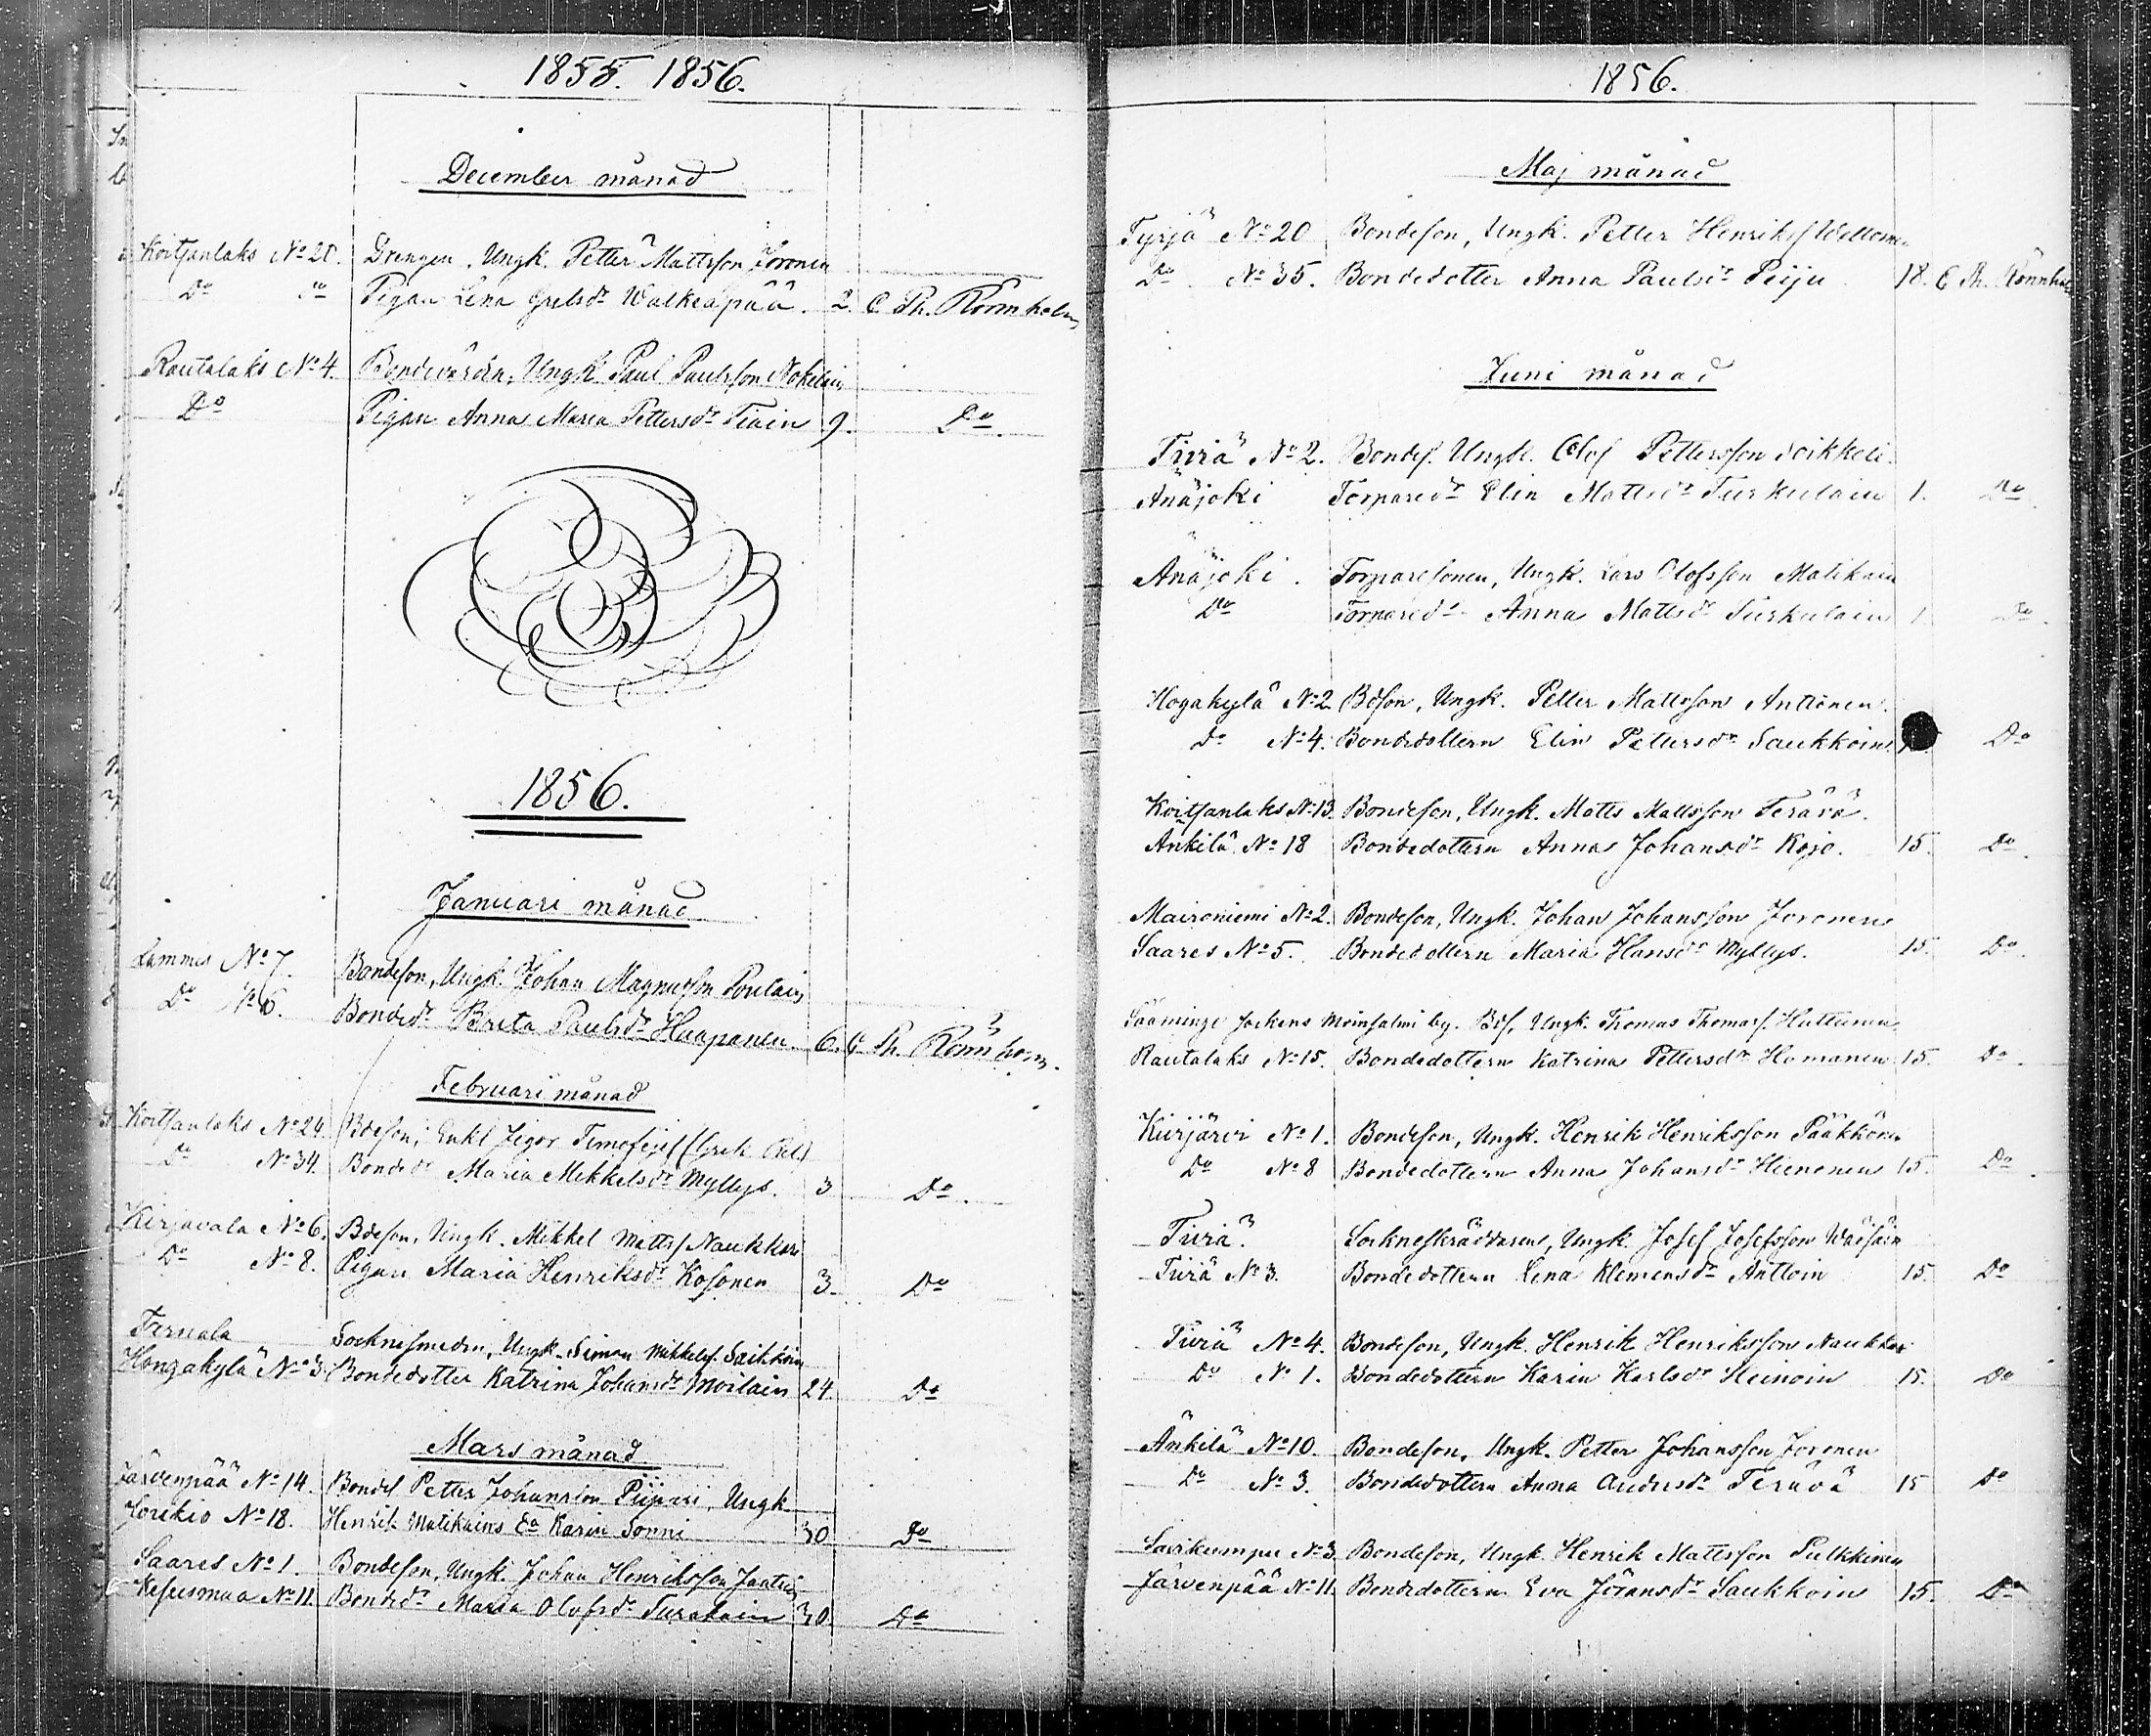 1855. 1856.
December månad
Koitsanlaks No 20. Drengen, Ungk. Petter Mattsson Joronen
Do Do Pigan Lena Grelsdr Walkeapää. 2. C. Th. Rönnholm
Rautalaks No 4. Bondevärden, Ungk. Paul Paulsson Nokelain
Do Pigan Anna Maria Pettersdr Tiain 9. Do.
1856.
Januari månad
Lammis No 7. Bondeson, Ungk. Johan Magnusson Poutain
Do No 6. Bondedr Brita Paulsdr Haapanen 6. C. Th. Rönnholm.
Februari månad
Koitsanlaks No 24. Bdeson, Enkl. Jegor Timofejef (Grek. Rel.)
Do No 34. Bondedr Maria Mikkelsdr Myllys. 3 Do.
Kirjavala No 6. Bdeson, Ungk. Mikkel Mattss. Naukkar
Do No 8. Pigan Maria Henriksdr Kosonen 3. Do
Socknesmeden, Ungk. Simon Mikkelss. Saikkoin
Hongakylä No 3. Bondedotter Katrina Johansdr Moilain 24. Do
Mars månad
Järvenpää No 14. Bondes. Petter Johansson Piipari, Ungk.
No 18. Henrik Matikains Do Karin Sonni 30 Do
Saares No 1. Bondeson, Ungk. Johan Henriksson Jantui
Kesusmaa No 11. Bondedr Maria Olofsdr Turakain 30. Do
1856.
Maj månad
Tyrjä No 20 Bondeson, Ungk. Petter Henrikss.
Do No 35. Bondedotter Anna Paulsdr Peiju 18. C. Th. Rönnholm
Juni månad
Tiviä No 2. Bondes. Ungk. Olof Pettersson
Änäjoki Torparedr Elin Mattsdr Turkulain 1. Do.
Änäjoki. Torparesonen, Ungk. Lars Olofsson Matikain
Do Torparedr Anna Mattsdr Turkulain 1 Do.
Hogakylä No 2 Bdson, Ungk. Petter Mattsson Anttonen.
Do No 4. Bondedottern Elin Pettersdr Saukkoin. Do
Koitsanlaks No 13. Bondeson, Ungk. Matts Mattsson Terävä.
Änkilä No 18 Bondedottern Anna Johansdr Kojo. 15. Do.
Maironiemi No 2. Bondeson, Ungk. Johan Johansson Joronen
Saares No 5. Bondedottern Maria Hansdr Myllys. 15. Do.
Sääminge sockens Moinsalmi by. Bds. Ungk. Thomas Thomass. Huttunen
Rautalaks No 15. Bondedottern Katrina Pettersdr Homanen 15. Do.
Kiirjärvi No 1. Bondeson, Ungk. Henrik Henriksson Pääkkön.
Do No 8 Bondedottern Anna Johansdr Hienonen 15. Do.
Tiviä. Sockneskräddaren, Ungk. Josef Josefsson Wäisäin
Tiviä No 3. Bondedottern Lena Klemensdr Anttoin 15. Do
Tiviä No 4. Bondeson, Ungk. Henrik Henriksson Naukkar
Do No 1. Bondedottern Karin Karlsdr Heinoin 15. Do
Änkilä No 10. Bondeson, Ungk. Petter Johansson Joronen
Do No 3. Bondedottern Anna Andersdr Terävä 15 Do
Savikumpu No 3. Bondeson, Ungk. Henrik Mattsson Pulkkinen
Järvenpää No 11. Bondedottern Eva Göransdr Saukkoin 15. Do